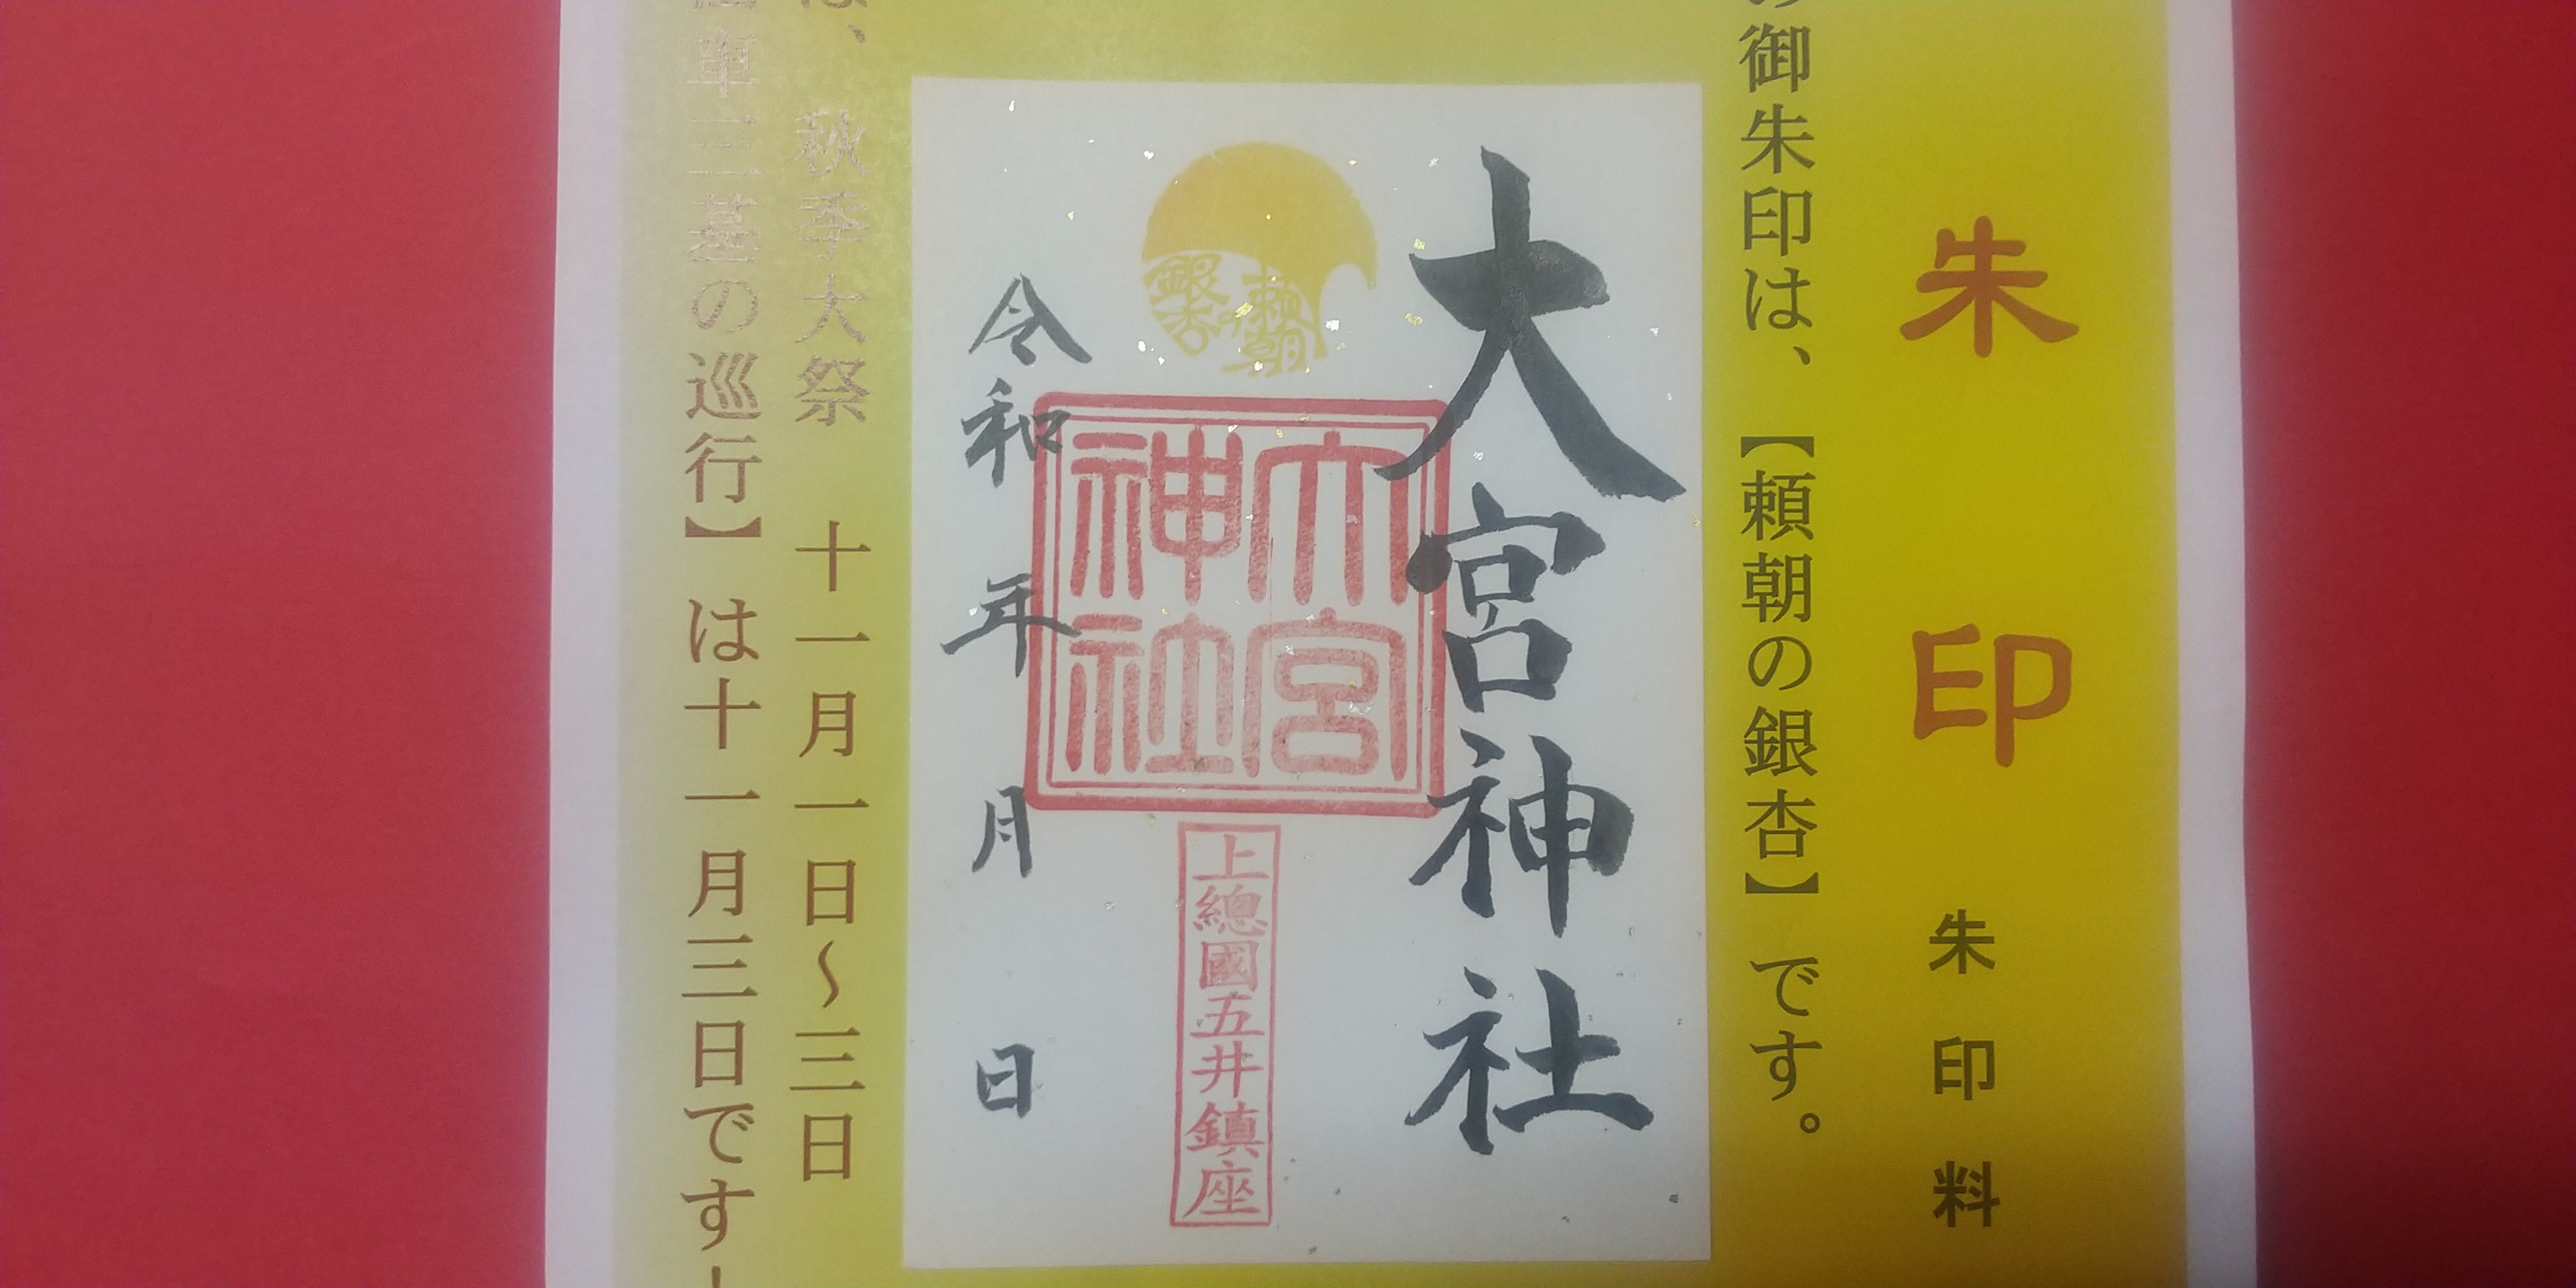 朱印 朱印料
御朱印は、【頼朝の銀杏】です。
大宮神社
頼朝の
銀杏
大宮
神社
上總國五井鎮座
令和 年 月 日
は、秋季大祭 十一月一日～三日
車三基の巡行】は十一月三日です！